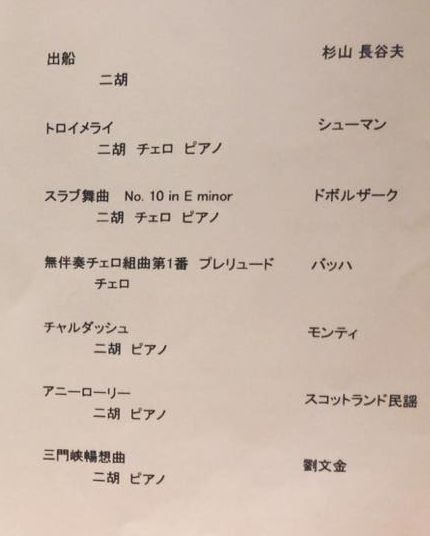 出船 杉山 長谷夫
二胡
トロイメライ シューマン
二胡 チェロ ピアノ
スラブ舞曲 No. 10 in E minor ドボルザーク
二胡 チェロ ピアノ
無伴奏チェロ組曲第1番 プレリュード バッハ
チェロ
チャルダッシュ モンティ
二胡 ピアノ
アニーローリー スコットランド民謡
二胡 ピアノ
三門峡暢想曲 劉文金
二胡 ピアノ